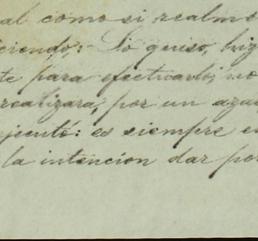 al como si realme
iciendo; Lo quiso, hiz
te para efectuarlo, no
realizara, por un agua
ejecutó: es siempre en
la intencion dar por